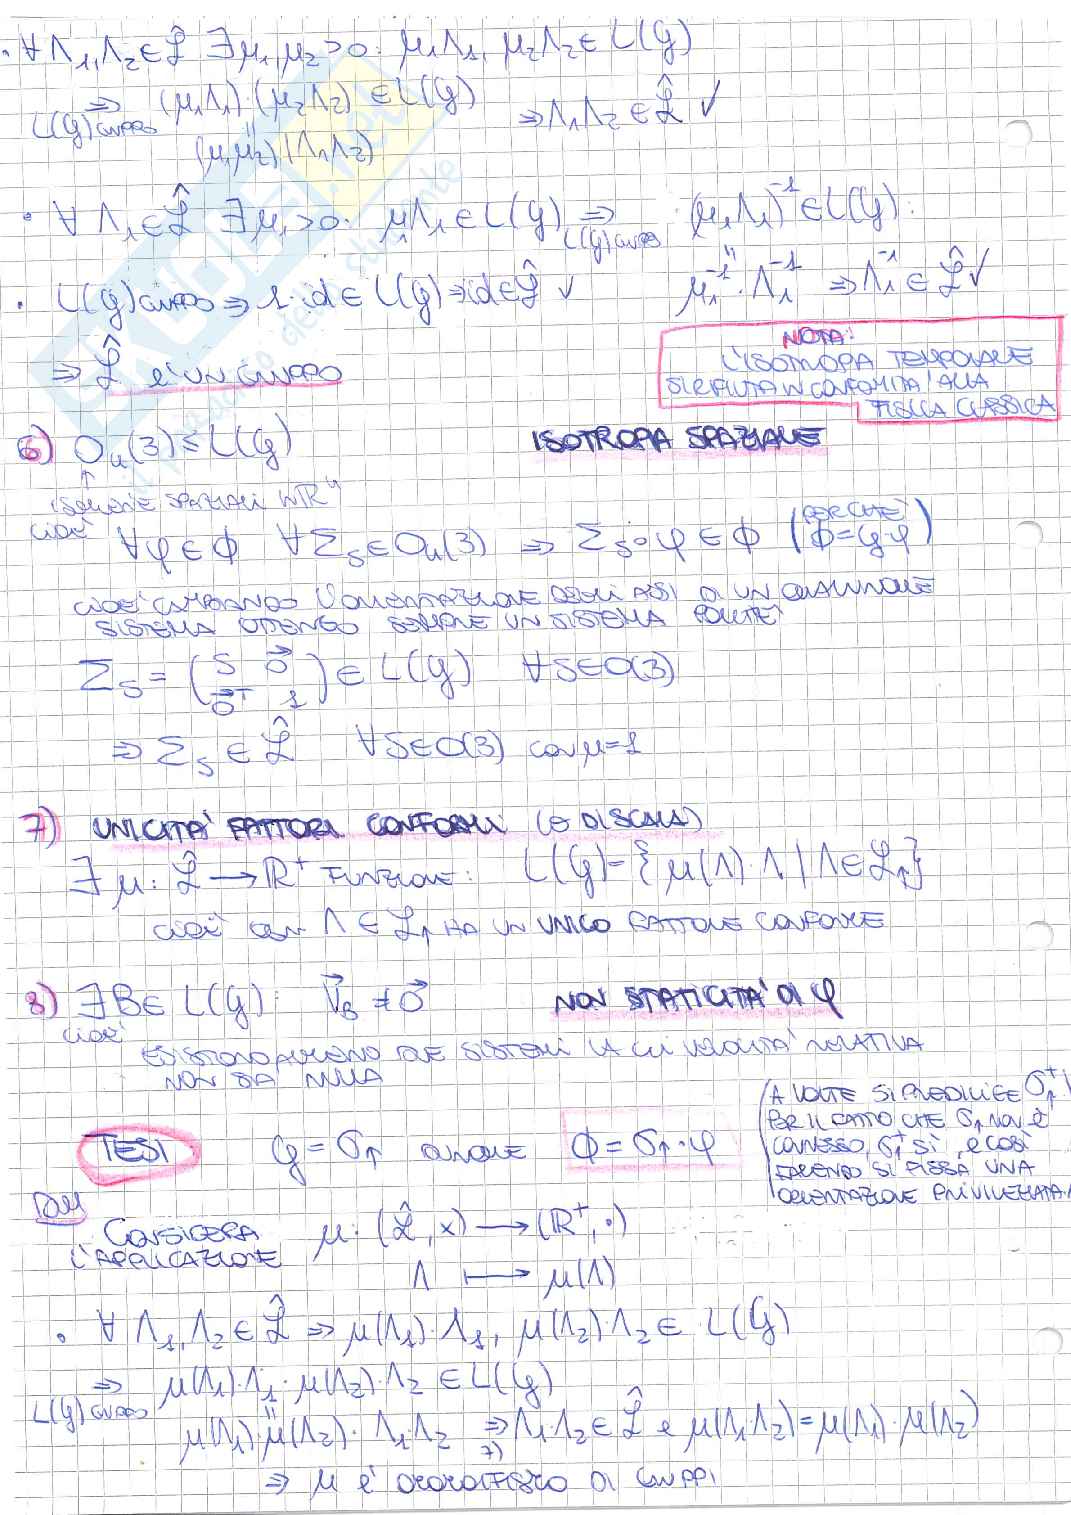 · ∀ Λ₁,Λ₂ ∈ ℒ̂ ∃ μ₁,μ₂ > 0: μ₁Λ₁, μ₂Λ₂ ∈ L(G)
⇒ (μ₁Λ₁)·(μ₂Λ₂) ∈ L(G) ⇒ Λ₁Λ₂ ∈ ℒ̂ ✓
L(G) GRUPPO
"
(μ₁μ₂)(Λ₁Λ₂)
· ∀ Λ₁ ∈ ℒ̂ ∃ μ₁ > 0: μ₁Λ₁ ∈ L(G) ⇒ (μ₁Λ₁)⁻¹ ∈ L(G):
L(G) GRUPPO
"
· L(G) GRUPPO ⇒ 1·id ∈ L(G) ⇒ id ∈ ℒ̂ ✓ μ₁⁻¹·Λ₁⁻¹ ⇒ Λ₁⁻¹ ∈ ℒ̂ ✓
⇒ ℒ̂ E' UN GRUPPO
NOTA:
L'ISOTROPIA TEMPORALE
SI RIFIUTA IN CONFORMITA' ALLA
FISICA CLASSICA
6) Oᵤ(3) ≤ L(G) ISOTROPIA SPAZIALE
↑
ISOMETRIE SPAZIALI IN ℝ⁴
CIOE' ∀φ ∈ Φ ∀Σ_S ∈ Oᵤ(3) ⇒ Σ_S∘φ ∈ Φ (PERCHE' Φ=G·φ)
CIOE' CAMBIANDO L'ORIENTAZIONE DEGLI ASSI DI UN QUALUNQUE
SISTEMA OTTENGO SEMPRE UN SISTEMA POICHE'
Σ_S = (S 0⃗ / 0⃗ᵀ 1) ∈ L(G) ∀S∈O(3)
⇒ Σ_S ∈ ℒ̂ ∀S∈O(3) con μ=1
7) UNICITA' FATTORI CONFORMI (O DI SCALA)
∃ μ: ℒ̂ → ℝ⁺ FUNZIONE: L(G)={μ(Λ)·Λ | Λ∈ℒ↑}
CIOE' OGNI Λ ∈ ℒ↑ HA UN UNICO FATTORE CONFORME
8) ∃ B ∈ L(G): V⃗_B ≠ 0⃗ NON STATICITA' DI φ
CIOE'
ESISTONO ALMENO DUE SISTEMI LA CUI VELOCITA' RELATIVA
NON SIA NULLA
TESI G = σ↑ OVVERO Φ = σ↑·φ
(A VOLTE SI PREDILIGE σ↑⁺
PER IL FATTO CHE σ↑ NON E'
CONNESSO, σ↑⁺ SI, E COSI'
FACENDO SI FISSA UNA
ORIENTAZIONE PRIVILEGIATA)
DIM
CONSIDERA μ: (ℒ̂, ×) → (ℝ⁺, ·)
L'APPLICAZIONE
Λ ↦ μ(Λ)
· ∀ Λ₁,Λ₂ ∈ ℒ̂ ⇒ μ(Λ₁)·Λ₁, μ(Λ₂)·Λ₂ ∈ L(G)
⇒ μ(Λ₁)·Λ₁·μ(Λ₂)·Λ₂ ∈ L(G)
L(G) GRUPPO
"
μ(Λ₁)·μ(Λ₂)·Λ₁·Λ₂ ⇒ Λ₁·Λ₂ ∈ ℒ̂ e μ(Λ₁·Λ₂)=μ(Λ₁)·μ(Λ₂)
7)
⇒ μ E' OMOMORFISMO DI GRUPPI